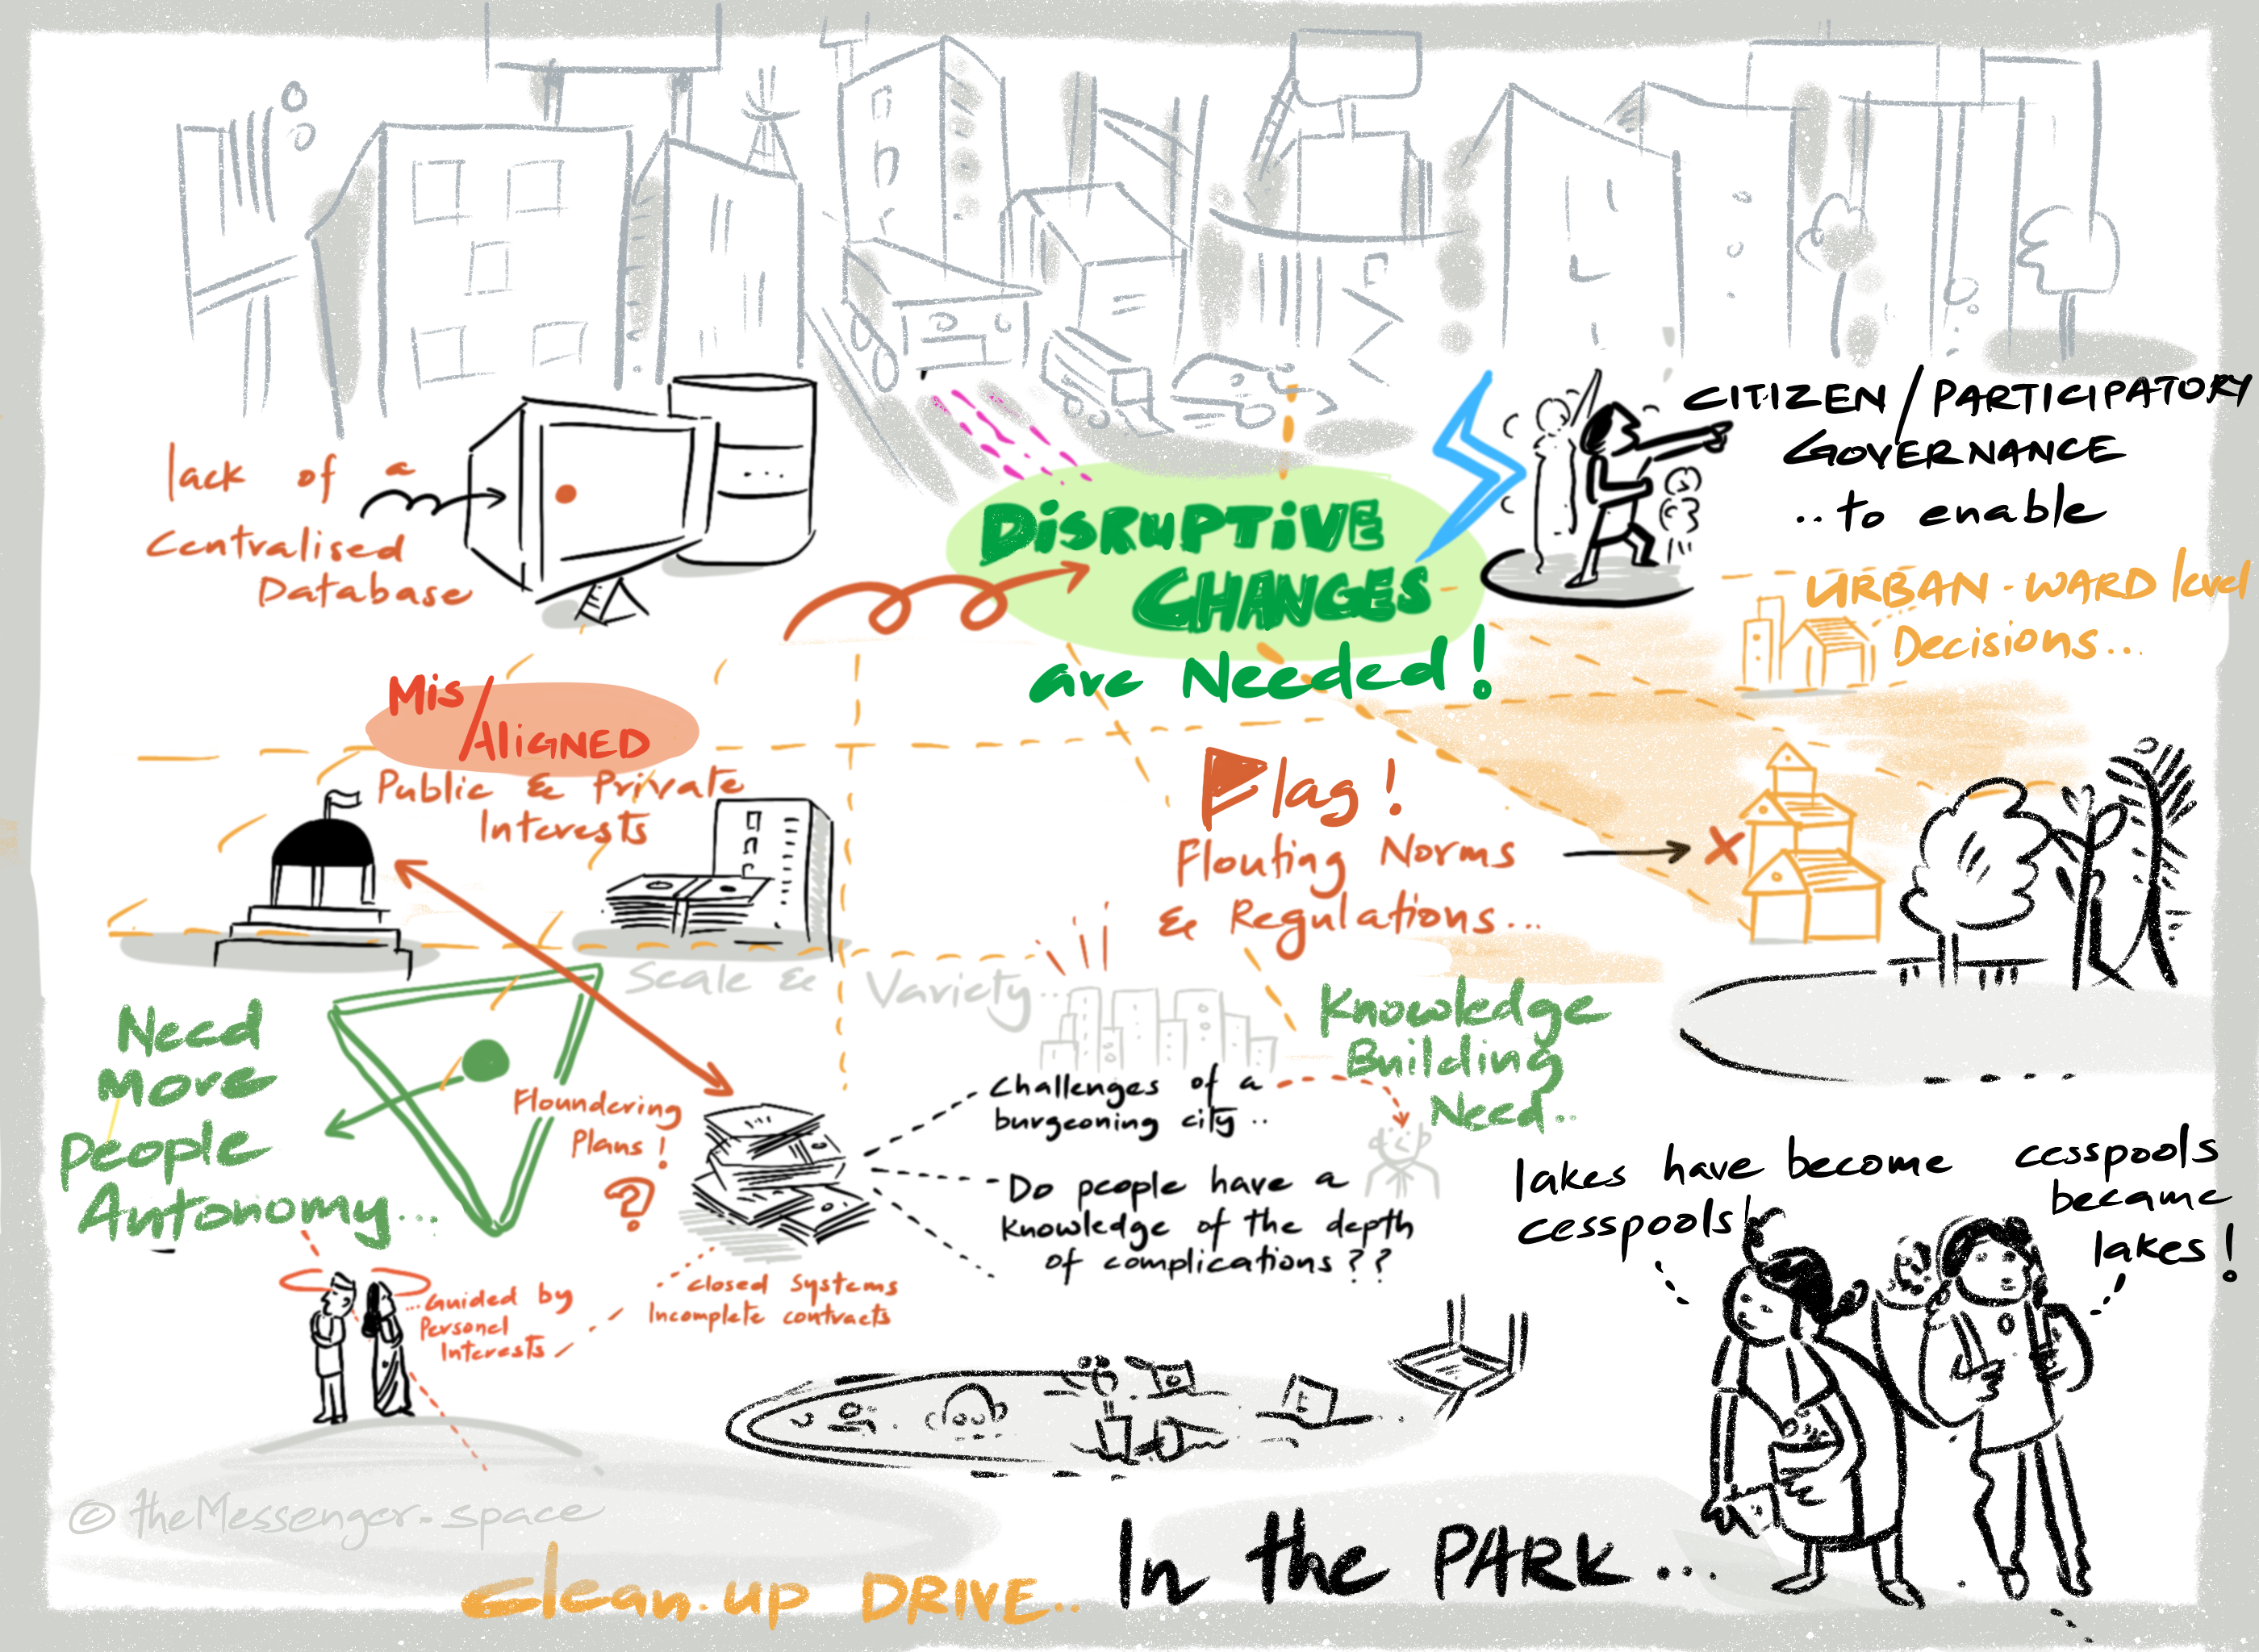 lack of a
Centralised
Database
DISRUPTIVE
CHANGES
are Needed!
CITIZEN / PARTICIPATORY
GOVERNANCE
..to enable
URBAN-WARD level
Decisions...
Mis/
Aligned
Public & Private
Interests
Flag!
Flouting Norms
& Regulations...
Scale & Variety...
Need
More
People
Autonomy...
Floundering
Plans!
?
Knowledge
Building
Need..
Challenges of a
burgeoning city..
Do people have a
knowledge of the depth
of complications??
...Guided by
Personal
Interests
closed Systems
Incomplete contracts
lakes have become
cesspools!
cesspools
became
lakes!
© theMessenger.space
clean.up DRIVE..
In the PARK...